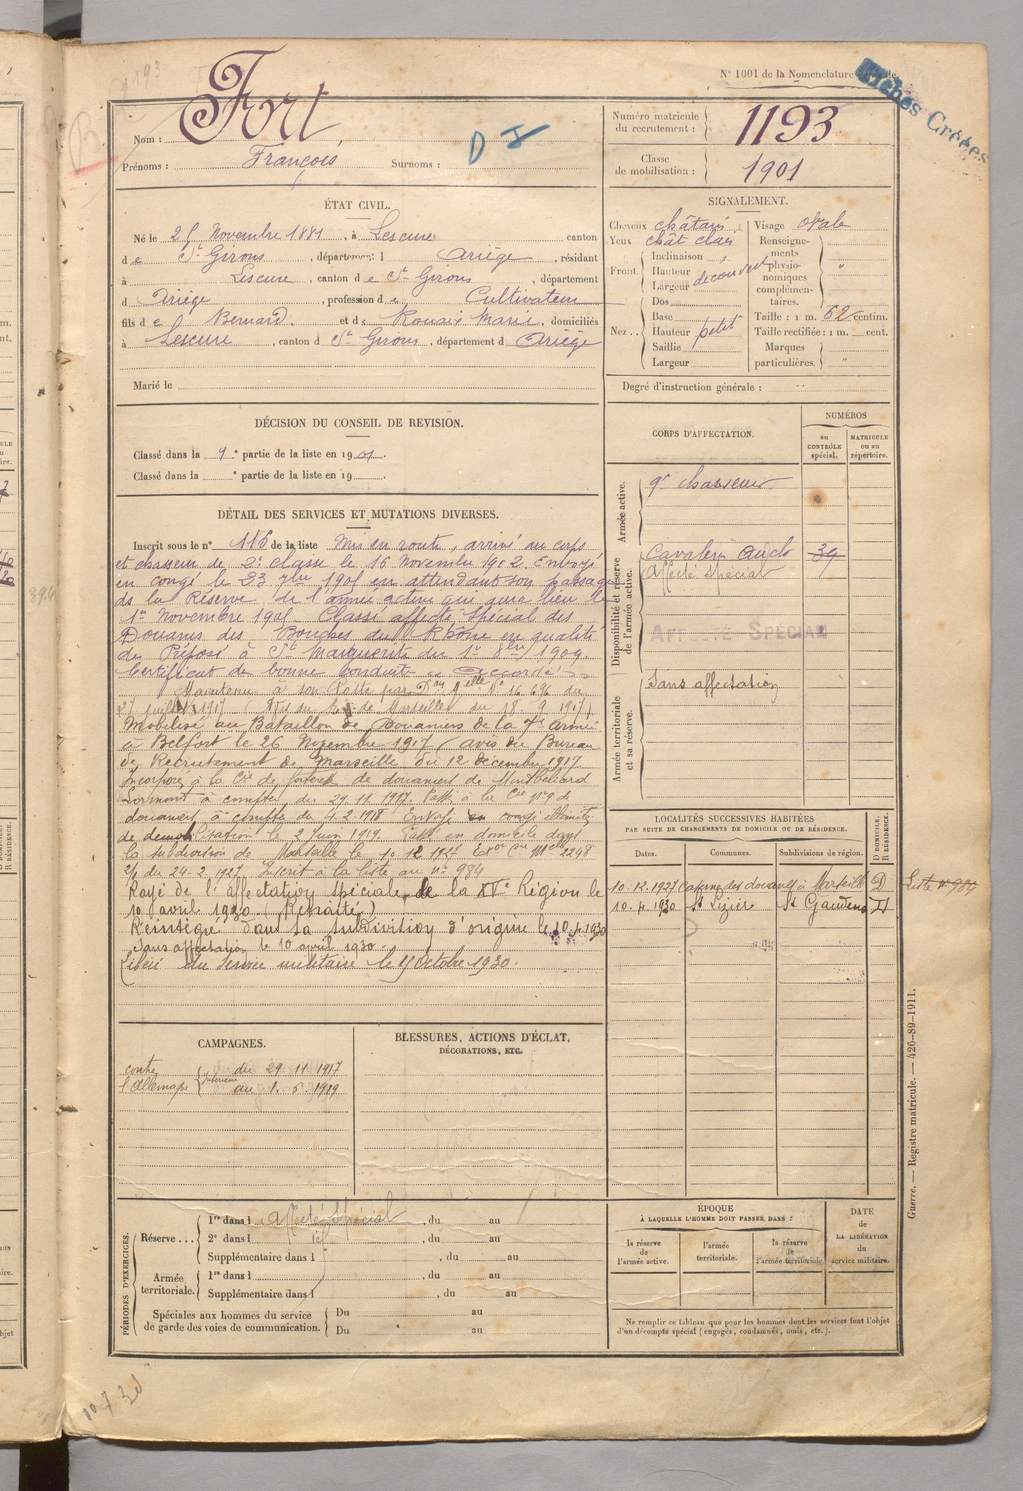 N° 1001 de la Nomenclature
Fiches Créées
Nom : Fort
Prénoms : François Surnoms :
D I
Numéro matricule du recrutement : 1193
Classe de mobilisation : 1901
ÉTAT CIVIL.
Né le 25 Novembre 1881, à Lescure canton
de St Girons, département d Ariège, résidant
à Lescure, canton de St Girons, département
d Ariège, profession de Cultivateur
fils de Bernard et de Rouaix Marie, domiciliés
à Lescure, canton d St Girons, département d Ariège
Marié le
SIGNALEMENT.
Cheveux châtains
Yeux chât clair
Front
Inclinaison
Hauteur
Largeur
découvert
Nez
Dos
Base
Hauteur petit
Saillie
Largeur
Visage ovale
Renseignements physionomiques complémentaires. "
Taille : 1 m. 62 centim.
Taille rectifiée : 1 m. cent.
Marques particulières. "
Degré d'instruction générale :
DÉCISION DU CONSEIL DE REVISION.
Classé dans la 1e partie de la liste en 1901.
Classé dans la e partie de la liste en 19 .
DÉTAIL DES SERVICES ET MUTATIONS DIVERSES.
Inscrit sous le n° 116 de la liste Mis en route, arrivé au corps
et chasseur de 2e classe le 16 Novembre 1902. Envoyé
en congé le 23 7bre 1905 en attendant son passage
ds la Réserve de l'armée active qui aura lieu le
1er Novembre 1905. Classé affecté spécial des
Douanes des Bouches du Rhône en qualité
de Préposé à Ste Marguerite du 1er 8bre 1909.
Certificat de bonne conduite accordé
Maintenu à son Poste par Don Mlle N° 16.696 du
juillet 1917 (Avis du de Marseille du 18.9.1917).
Mobilisé au Bataillon de Douaniers de la 7e armée
à Belfort le 26 Novembre 1917 (avis du Bureau
de Recrutement de Marseille du 12 décembre 1917
Incorporé à la Cie de forteresse de douaniers de Montbéliard
Lormont à compter du 29.11.1917. Passé à la Cie n° 9 de
douaniers à compter du 4.2.1918. Envoyé en congé illimité
de démobilisation le 2 Juin 1919. Passé en domicile dans
la subdivision de Marseille le 10.12.1927 2248
2/1 du 24.2.1927. Inscrit à la liste au n° 984
Rayé de l'affectation spéciale de la XVe Région le
10 avril 1930. (Retraité)
Réintégré dans sa subdivision d'origine le 10.4.1930
Sans affectation le 10 avril 1930.
Libéré du service militaire le 15 Octobre 1930.
CORPS D'AFFECTATION.
NUMÉROS
au CONTRÔLE spécial.
MATRICULE ou au répertoire.
Armée active.
9e Chasseurs
Disponibilité et réserve de l'armée active.
Cavalerie Auch 39
Affecté spécial
AFFECTÉ SPÉCIAL
Armée territoriale et sa réserve.
Sans affectation
LOCALITÉS SUCCESSIVES HABITÉES
PAR SUITE DE CHANGEMENTS DE DOMICILE OU DE RÉSIDENCE.
Dates. Communes. Subdivisions de région. D DOMICILE. R RÉSIDENCE.
10.12.1927 Caserne des douanes à Marseille D
Liste n° 984
10.4.1930 St Lizier St Gaudens D
CAMPAGNES.
contre l'Allemagne
Intérieur
du 29.11.1917
au 1.6.1919
BLESSURES, ACTIONS D'ÉCLAT,
DÉCORATIONS, ETC.
PÉRIODES D'EXERCICES.
Réserve...
1re dans l Affecté Spécial, du au
2e dans l id, du au
Supplémentaire dans l , du au
Armée territoriale.
1re dans l , du au
Supplémentaire dans l , du au
Spéciales aux hommes du service de garde des voies de communication.
Du au
Du au
ÉPOQUE
À LAQUELLE L'HOMME DOIT PASSER DANS :
la réserve de l'armée active.
l'armée territoriale.
la réserve de l'armée territoriale
DATE de LA LIBÉRATION du service militaire.
Ne remplir ce tableau que pour les hommes dont les services font l'objet
d'un décompte spécial (engagés, condamnés, omis, etc.).
Guerre. — Registre matricule. — 426-89-1911.